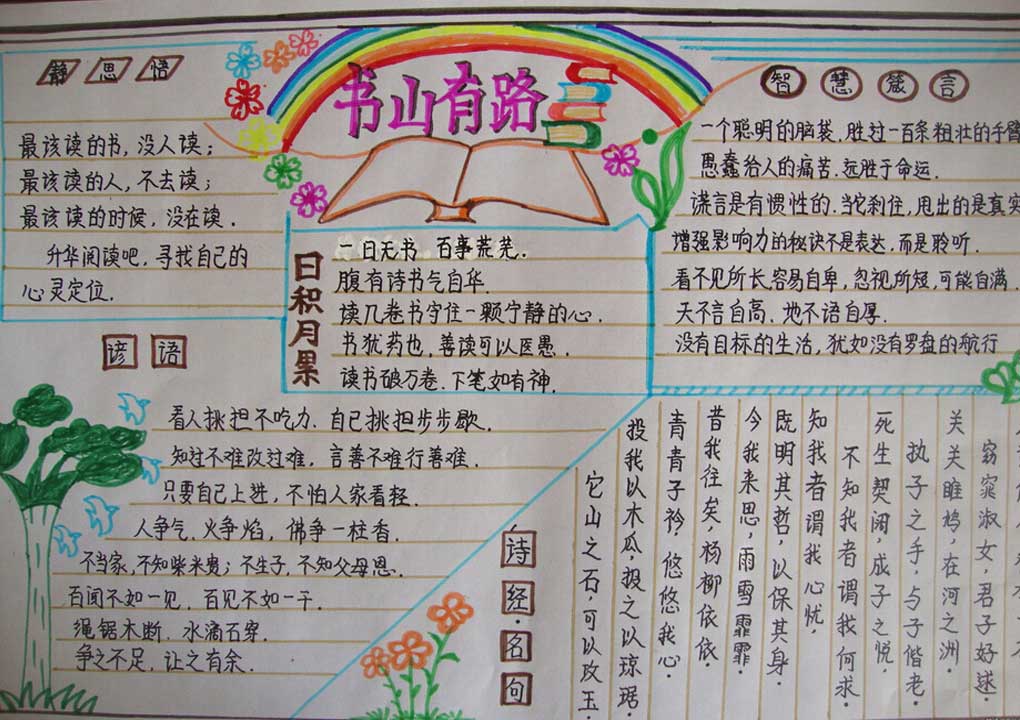 静思悟
最该读的书，没人读；
最该读的人，不去读；
最该读的时候，没在读．
升华阅读吧，寻找自己的
心灵定位．
书山有路
日积月累
一日无书　百事荒芜．
腹有诗书气自华．
读几卷书守住一颗宁静的心．
书犹药也，善读可以医愚．
读书破万卷．下笔如有神．
智慧箴言
一个聪明的脑袋，胜过一百条粗壮的手臂
愚蠢给人的痛苦．远胜于命运．
谎言是有惯性的．当它刹住，甩出的是真实
增强影响力的秘诀不是表达，而是聆听．
看不见所长，容易自卑，忽视所短，可能自满．
天不言自高．地不语自厚．
没有目标的生活，犹如没有罗盘的航行
谚语
看人挑担不吃力．自己挑担步步歇．
知过不难改过难，言善不难行善难．
只要自己上进，不怕人家看轻．
人争气，火争焰，佛争一柱香．
不当家，不知柴米贵；不生子，不知父母恩．
百闻不如一见，百见不如一干．
绳锯木断．水滴石穿．
争之不足，让之有余．
诗经·名句
它山之石，可以攻玉．
投我以木瓜．投之以琼琚．
青青子衿，悠悠我心．
昔我往矣，杨柳依依．
今我来思，雨雪霏霏．
既明其哲，以保其身．
知我者谓我心忧，
不知我者谓我何求．
死生契阔，成子之悦．
执子之手，与子偕老．
关关雎鸠，在河之洲．
窈窕淑女，君子好逑．